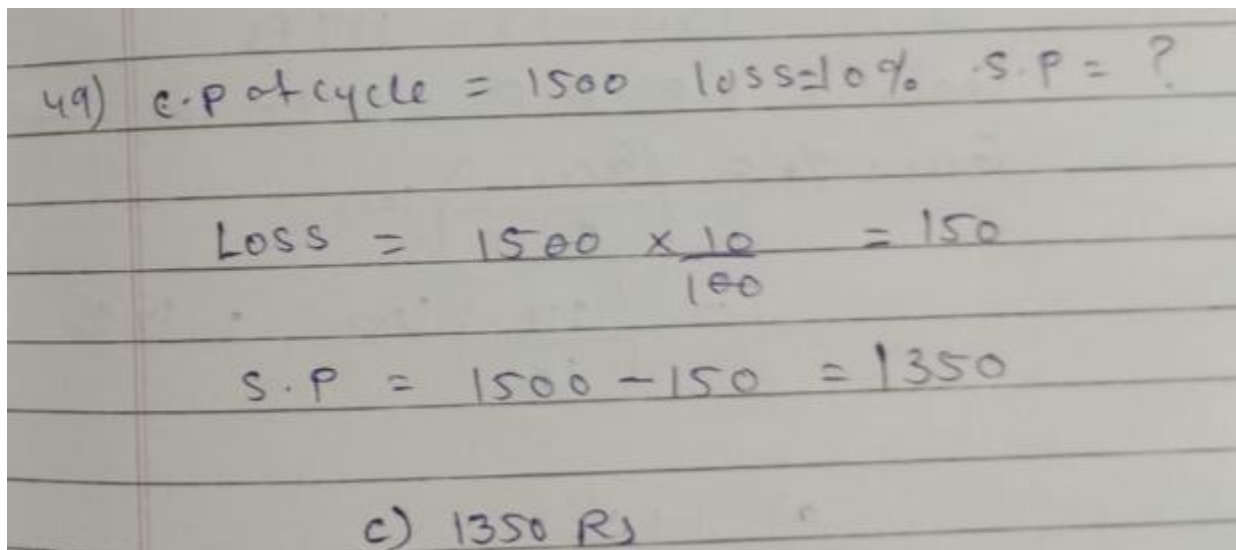 49) C.P of cycle = 1500 loss=10% S.P = ?
Loss = 1500 × 10/100 = 150
S.P = 1500 - 150 = 1350
c) 1350 Rs